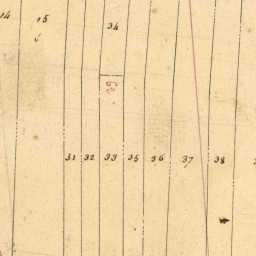 14 15 34
6
31 32 33 35 36 37 38